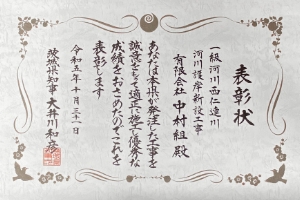 表彰状
一級河川西仁連川
河川護岸新設工事
有限会社 中村組 殿
あなたは本県が発注した工事を
誠意をもって適正に施工し優秀な
成績をおさめたのでこれを
表彰します
令和五年十月三十一日
茨城県知事 大井川和彦